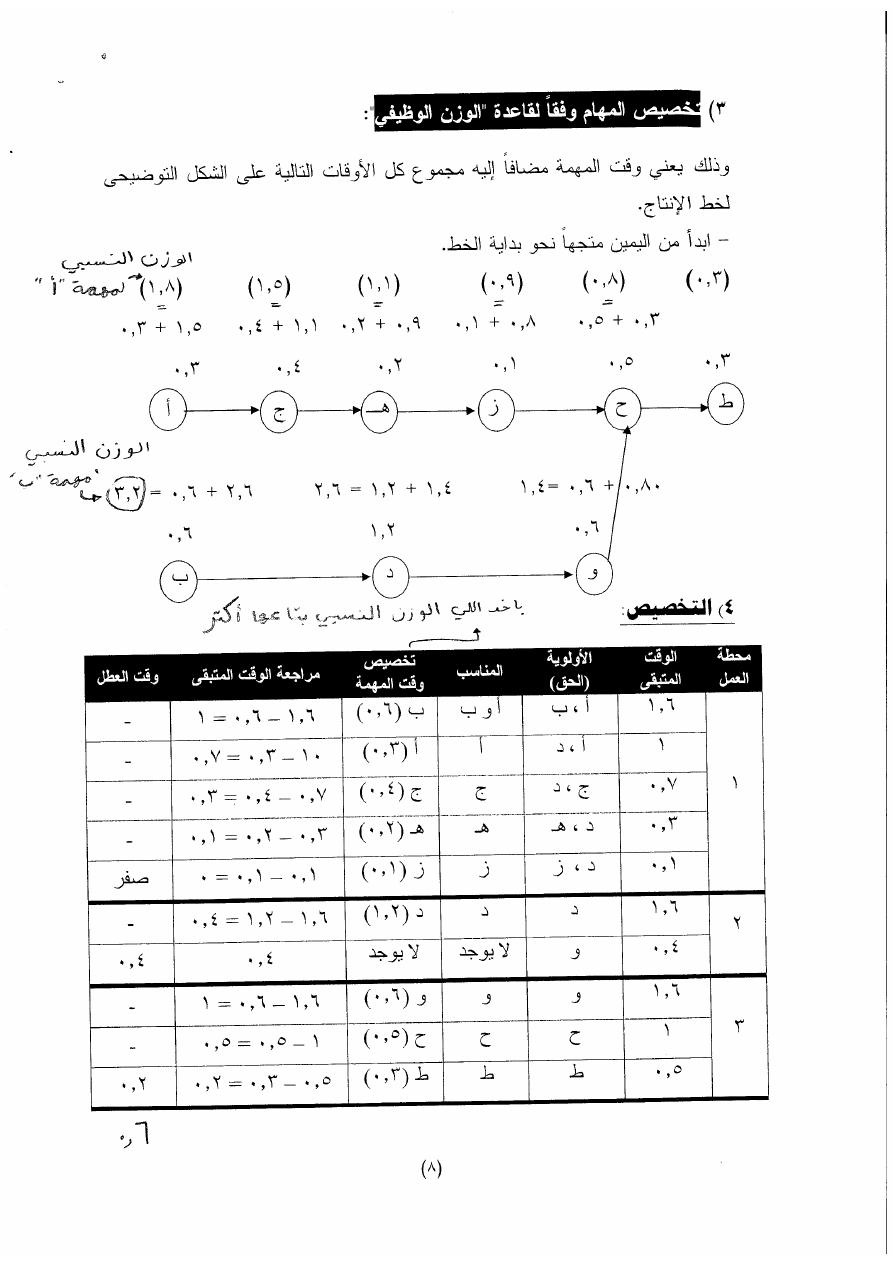 ٣) تخصيص المهام وفقاً لقاعدة "الوزن الوظيفي":
وذلك يعني وقت المهمة مضافاً إليه مجموع كل الأوقات التالية على الشكل التوضيحى
لخط الإنتاج.
– ابدأ من اليمين متجهاً نحو بداية الخط.
الوزن النسبي
لمهمة "أ"
(١,٨) (١,٥) (١,١) (٠,٩) (٠,٨) (٠,٣)
٠,٣ + ١,٥ ٠,٤ + ١,١ ٠,٢ + ٠,٩ ٠,١ + ٠,٨ ٠,٥ + ٠,٣
٠,٣ ٠,٤ ٠,٢ ٠,١ ٠,٥ ٠,٣
أ ج هـ ز ح ط
الوزن النسبي
مهمة "ب"
(٣,٢) = ٠,٦ + ٢,٦ ٢,٦ = ١,٢ + ١,٤ ١,٤ = ٠,٦ + ٠,٨٠
٠,٦ ١,٢ ٠,٦
ب د و
٤) التخصيص:
باخد اللي الوزن النسبي بتاعها أكتر
محطة العمل الوقت المتبقى الأولوية (الحق) المناسب تخصيص وقت المهمة مراجعة الوقت المتبقى وقت العطل
١ ١,٦ أ ، ب أ و ب ب (٠,٦) ١,٦ – ٠,٦ = ١ –
١ أ ، د أ أ (٠,٣) ١٠ – ٠,٣ = ٠,٧ –
٠,٧ ج ، د ج ج (٠,٤) ٠,٧ – ٠,٤ = ٠,٣ –
٠,٣ د ، هـ هـ هـ (٠,٢) ٠,٣ – ٠,٢ = ٠,١ –
٠,١ د ، ز ز ز (٠,١) ٠,١ – ٠,١ = ٠ صفر
٢ ١,٦ د د د (١,٢) ١,٦ – ١,٢ = ٠,٤ –
٠,٤ و لا يوجد لا يوجد ٠,٤ ٠,٤
٣ ١,٦ و و و (٠,٦) ١,٦ – ٠,٦ = ١ –
١ ح ح ح (٠,٥) ١ – ٠,٥ = ٠,٥ –
٠,٥ ط ط ط (٠,٣) ٠,٥ – ٠,٣ = ٠,٢ ٠,٢
٠,٦
(٨)